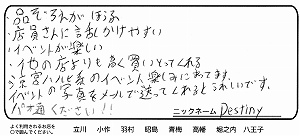 品ぞろえがほうふ
店員さんに話しかけやすい
イベントが楽しい
他の店よりも高く買いとってくれる
涼宮ハルヒ系のイベント楽しみにまってます。
イベントの写真をメールで送ってくれるとうれしいです。
ください!!
ニックネーム Destiny
よく利用されるお店を
○で囲んでください。
立川 小作 羽村 昭島 青梅 高幡 堀之内 八王子